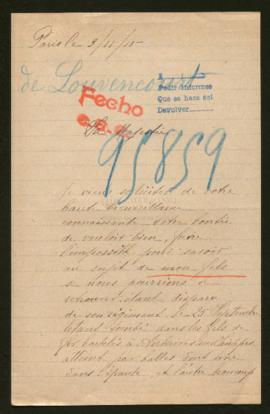 Paris le 3/11/15
de Louvencourt
Pedir informes
Que se haga así
Devolver
Fecho
95859
Je viens solliciter de votre
haute bienveillance
connaissant votre bonté
de vouloir bien, faire
l'impossible pour savoir
au sujet de mon fils
si nous pourrions
étant disparu
de son régiment le 25 Septembre
étant tombé dans les fils de
fer
par balles
dans l'épaule et l'autre